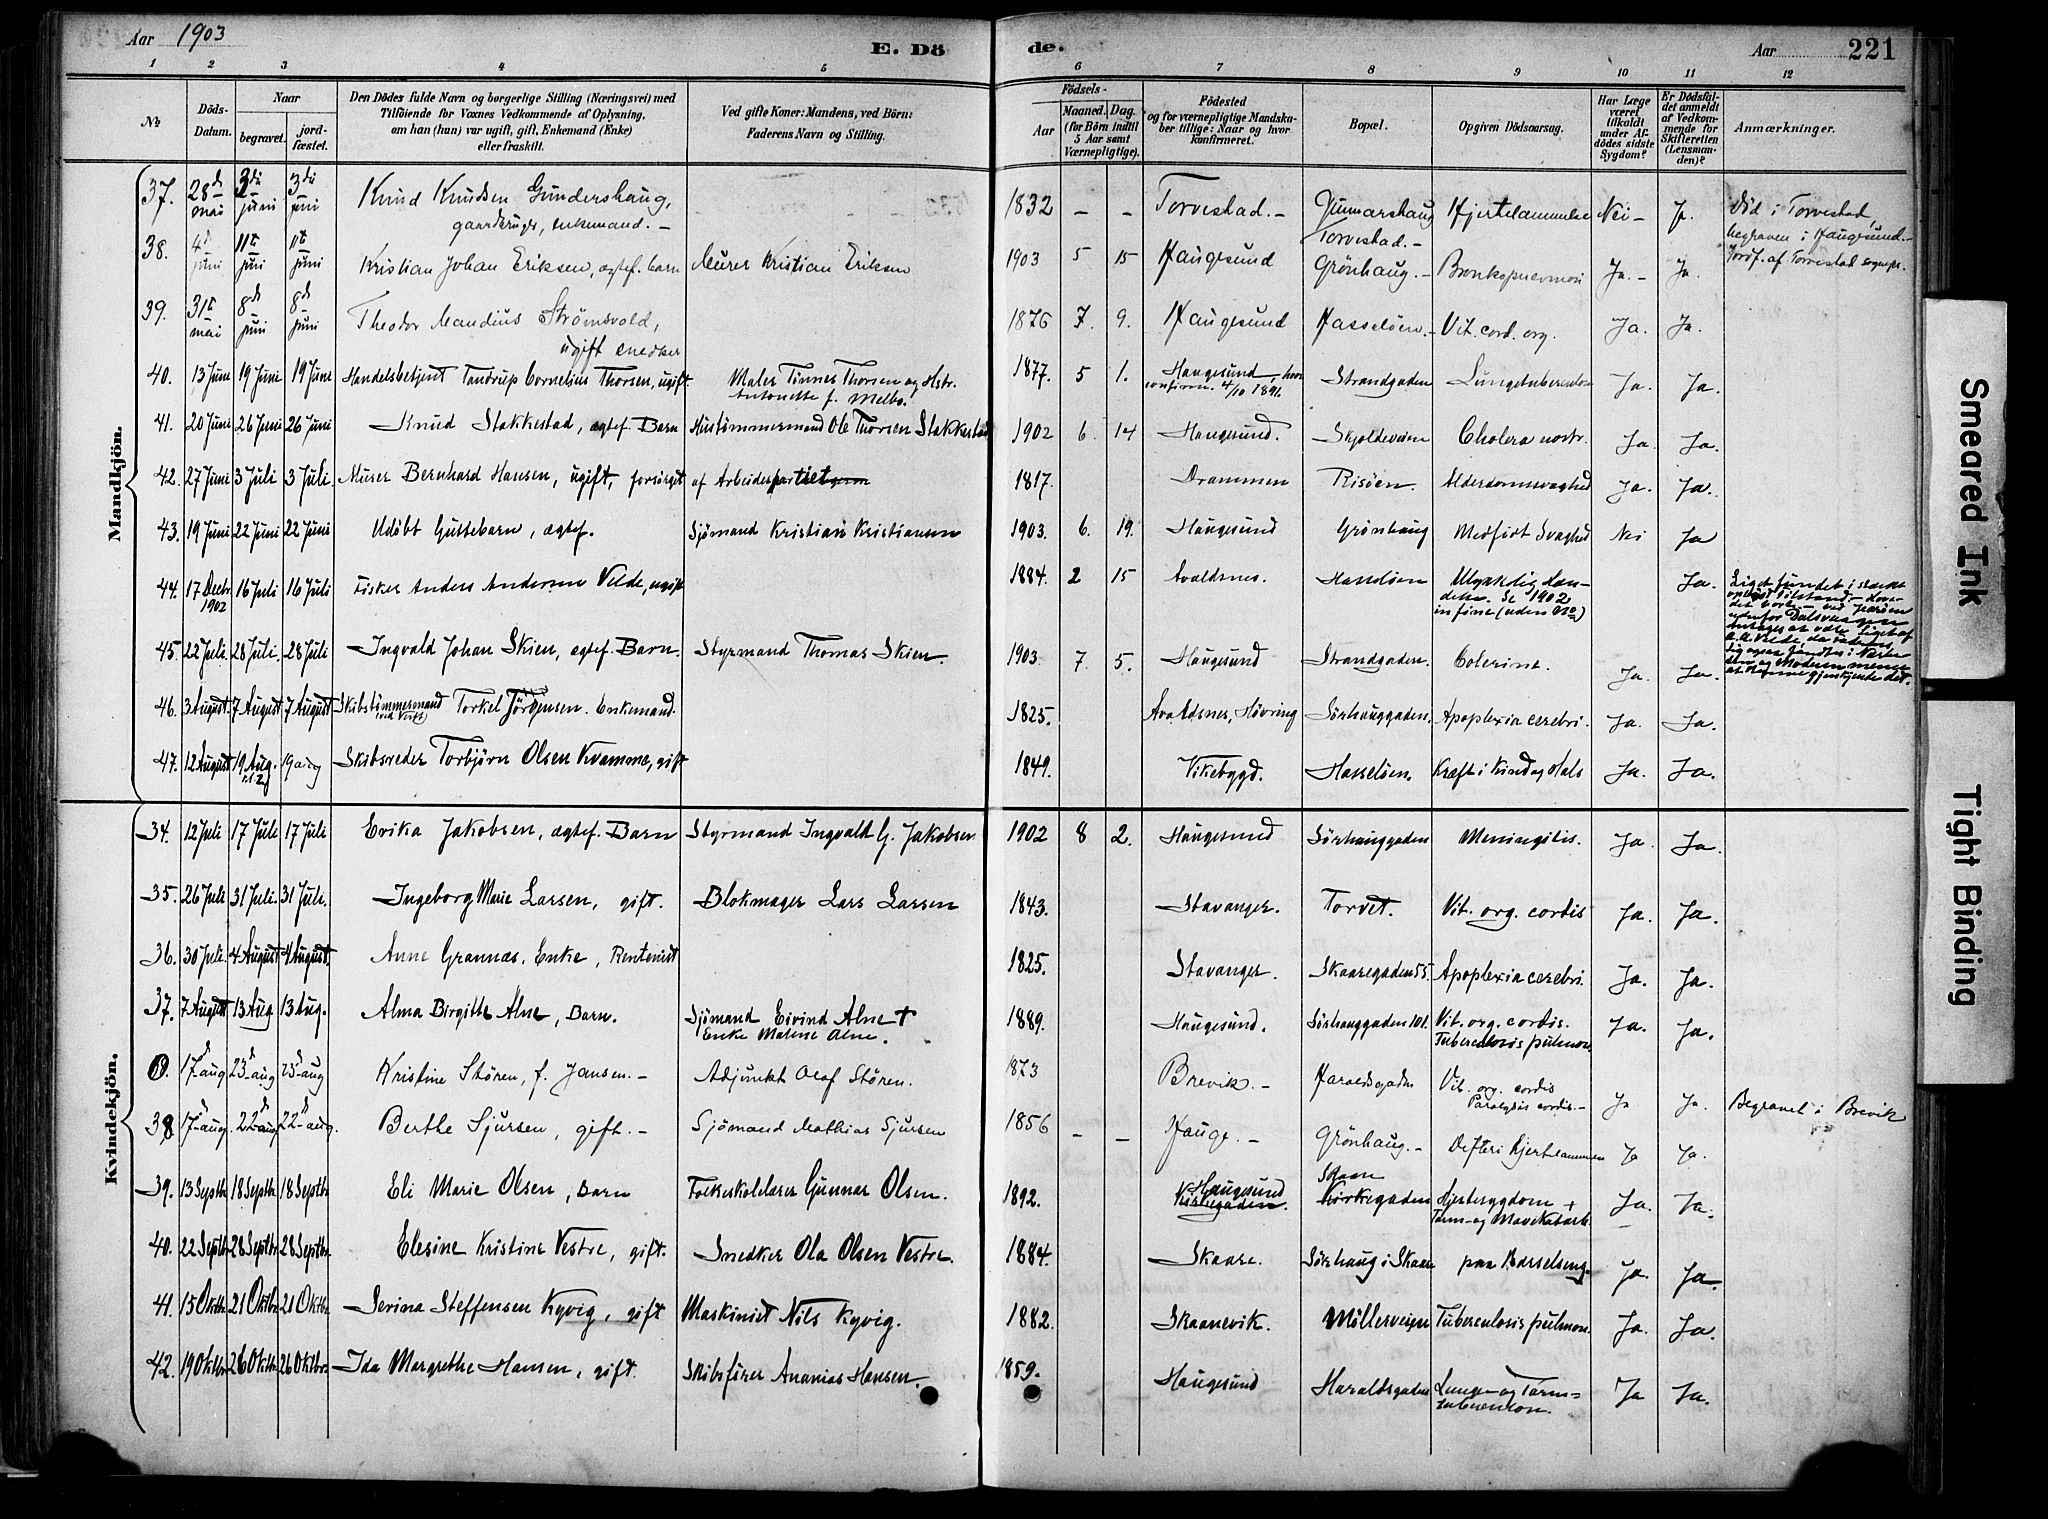 Aar 1903
E. Dö de.
Aar 221
1 2 3 4 5 6 7 8 9 10 11 12
№
Döds-Datum.
Naar
begravet.
jord-fæstet.
Den Dödes fulde Navn og borgerlige Stilling (Næringsvei) med
Tilföiende for Voxnes Vedkommende af Oplysning,
om han (hun) var ugift, gift, Enkemand (Enke)
eller fraskilt.
Ved gifte Koner: Mandens, ved Börn:
Faderens Navn og Stilling.
Födsels-
Aar
Maaned.
Dag.
(for Börn indtil
5 Aar samt
Værnepligtige).
Födested
og for værnepligtige Mandska-
ber tillige: Naar og hvor
konfirmeret.
Bopæl.
Opgiven Dödsaarsag.
Har Læge
været
tilkaldt
under Af-
dödes sidste
Sygdom?
Er Dödsfal-
det anmeldt
af Vedkom-
mende for
Skifteretten
(Lensman-
den)?
Anmærkninger.
Mandkjön.
37. 28d mai 3die juni 3die juni Knud Knudsen Gundershaug, gaardbruger, enkemand. — 1832 — — Torvestad. — Gunnarshaug Torvestad. — Hjertelammelse Nei — Ja. Död i Torvestad, begraven i Haugesund. —
38. 4d juni 11te juni 11te juni Kristian Johan Eriksen, ægtef. barn Murer Kristian Eriksen 1903 5 15 Haugesund Grönhaug. — Bronkopneumoni Ja. — Ja.
39. 31te mai 8d juni 8d juni Theodor Mandius Strömsvold, ugift snedker 1876 7. 9. Haugesund Hasselöen. — Vit. cord. org. Ja. Ja.
40. 13 Juni 19 Juni 19 Juni Handelsbetjent Tandrup Cornelius Thorsen, ugift Maler Tönnes Thorsen og Hstr. Antonette f. Melbo. 1877. 5 1. Haugesund, hvor confirm. 4/10 1891. Strandgaden Lungetuberculose Ja. Ja.
41. 20 Juni 26 Juni 26 Juni Knud Stakkestad, ægtef. Barn Hustömmermand Ole Thorsen Stakkestad 1902 6. 14 Haugesund. Skjoldeveien Cholera nostr. Ja. Ja.
42. 27 Juni 3 Juli 3 Juli. Murer Bernhard Hansen, ugift, forsörget af Arbeiderpartiet 1817. Drammen Risöen. Alderdomssvaghed Ja. Ja.
43. 19 Juni 22 Juni 22 Juni Udöbt Guttebarn, ægtef. Sjömand Kristian Kristiansen 1903. 6. 19. Haugesund Grönhaug Medfödt Svaghed Nei Ja
44. 17 Decbr. 1902 16 Juli 16 Juli Fisker Anders Andersen Velde, ugift 1884. 2 15 Avaldsnes. Hasselöen Ulykkelig Hændelse. Se 1902 in fine (uden No) Ja.
45. 22 Juli. 28 Juli. 28 Juli Ingvald Johan Skien, ægtef. Barn. Styrmand Thomas Skien. 1903. 7. 5. Haugesund Strandgaden. Colerine. Ja. Ja.
46. 3 August. 7 August 7 August Skibstömmermand (ved Verft) Torkel Jörgensen. Enkemand. 1825. Avaldsnes, Hövring Sörhauggaden. Apoplexia cerebri. Ja. Ja.
47. 12 August 19 Aug. 19 aug Skibsreder Torbjörn Olsen Kvamme, gift 1849. Vikebygd. Hasselöen. Kræft i Kind og Hals Ja. Ja.
Kvindekjön.
34. 12 Juli 17 Juli 17 Juli Erika Jakobsen, ægtef. Barn Styrmand Ingvald G. Jakobsen 1902 8 2. Haugesund Sörhauggaden Meningitis. Ja. Ja.
35. 26 Juli 31 Juli. 31 Juli. Ingeborg Marie Larsen, gift. Blokmager Lars Larsen 1843. Stavanger. Torvet. Vit. org. cordis Ja. Ja.
36. 30 Juli. 4 August 4 August. Anne Grannæs. Enke, Rentenist 1825. Stavanger. Skaaregaden 55. Apoplexia cerebri. Ja. Ja.
37. 7 August 13 Aug. 13 Aug. Alma Birgitte Alne, Barn. Sjömand Eivind Alne † Enke Malene Alne. 1889. Haugesund. Sörhauggaden 101. Vit. org. cordis. Tuberculosis pulmon. Ja. Ja.
0. 17d aug 23d aug 23d aug Kristine Stören, f. Jansen. — Adjunkt Olaf Stören. 1873 Brevik. — Haraldsgaden Vit. org. cordis Paralysis cordis. — Ja Ja. Begravet i Brevik
38 17d aug. 22d aug 22d aug. Berthe Sjursen, gift. — Sjömand Mathias Sjursen 1856 — — Hauge. — Grönhaug. — Difteri Hjertelammelse Ja Ja.
39. 13 Septbr. 18 Septbr. 18 Septbr. Eli Marie Olsen, Barn Folkeskolelærer Gunnar Olsen. 1892. Haugesund Kirkegaden. Skaare Kirkegaden Hjertesygdom + Tarm- og Mavekatarh. Ja. Ja.
40. 22 Septbr. 28 Septbr. 28 Septbr. Elesine Kristine Vestre, gift. Snedker Ola Olsen Vestre. 1884. Skaare. Sörhaug i Skaare paa Barselseng. Ja. Ja.
41. 15 Oktbr. 21 Oktbr 21 Oktbr Serina Steffensen Kyvig, gift Maskinist Nils Kyvig. 1882. Skaanevik. Möllerveien Tuberculosis pulmon. Ja. Ja.
42. 19 Oktbr. 26 Oktbr. 26 Oktbr. Ida Margrethe Hansen, gift. Skibsförer Ananias Hansen. 1859. Haugesund Haraldsgaden Lunge- og Tarm-tuberculose. Ja Ja.
Smeared Ink
Tight Binding